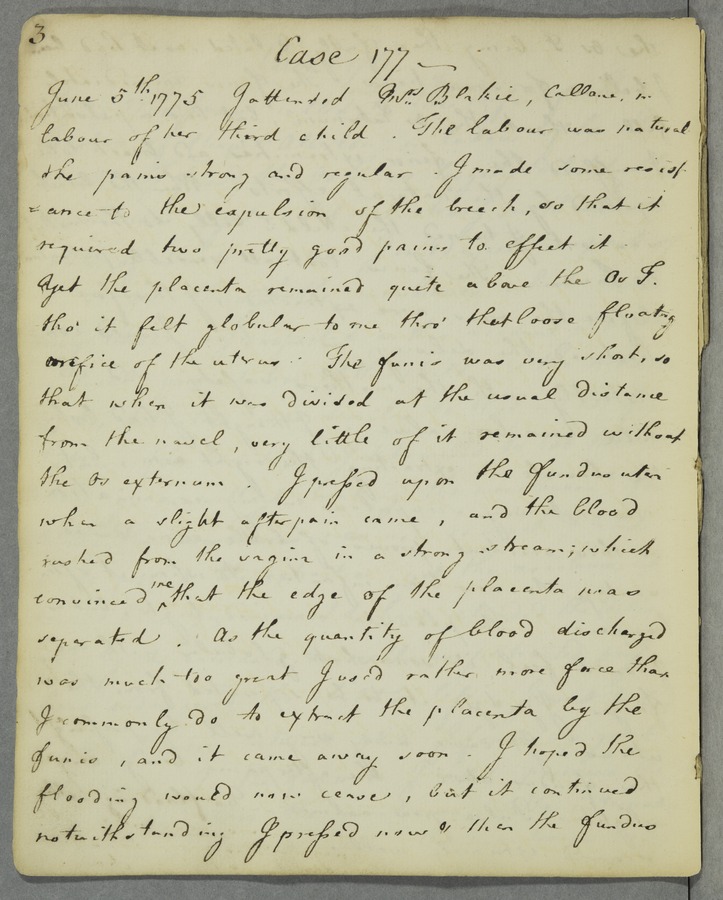 3
Case 177
June 5th 1775 I attended Mrs Blakie, Callone, in
labour of her third child. The labour was natural
the pains strong and regular. I made some resist
=ance to the expulsion of the breech, so that it
required two pretty good pains to effect it.
Yet the placenta remained quite above the Os T.
tho' it felt globular to me thro' that loose floatng
orifice of the uterus. The funis was very short, so
that when it was divided at the usual distance
from the navel, very little of it remained without
the os externum. I pressed upon the fundus uteri
when a slight afterpain came, and the blood
rushed from the vagina in a strong stream; which
convinced me that the edge of the placenta was
separated. As the quantity of blood discharged
was much too great I used rather more force than
I commonly do to extract the placenta by the
funis, and it came away soon. I hoped the
flooding would now cease, but it continued
notwithstanding I pressed now & then the fundus